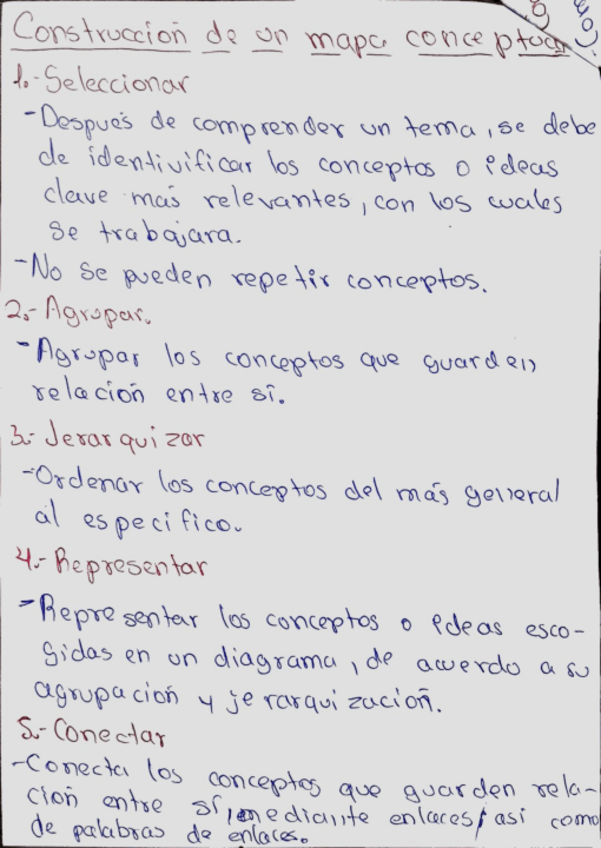 Construccion de un mapa conceptual
1.- Seleccionar
- Después de comprender un tema, se debe
de identivificar los conceptos o ideas
clave más relevantes, con los cuales
se trabajara.
- No se pueden repetir conceptos.
2.- Agrupar.
- Agrupar los conceptos que guarden
relación entre sí.
3.- Jerarquizar
- Ordenar los conceptos del más general
al especifico.
4.- Representar
- Representar los conceptos o ideas esco-
gidas en un diagrama, de acuerdo a su
agrupación y jerarquización.
5.- Conectar
- Conecta los conceptos que guarden rela-
ción entre sí, mediante enlaces, así como
de palabras de enlaces.